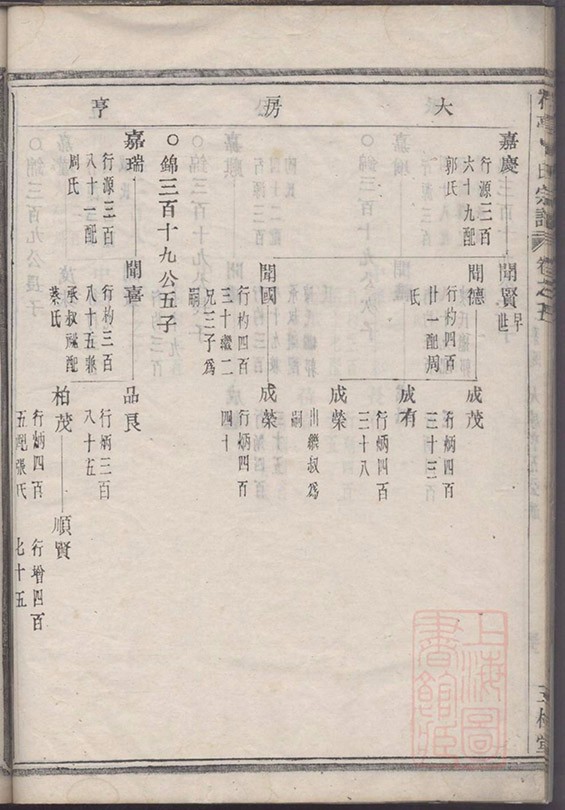 大房亨
嘉慶
行源三百
六十九配
郭氏
聞賢
早
世
聞德
行杓四百
廿一配周
氏
成茂
行炳四百
三十三
成有
行炳四百
三十八
成榮
出繼叔爲
嗣
聞國
行杓四百
三十繼二
兄三子爲
嗣
成榮
行炳四百
四十
○錦三百十九公五子
嘉瑞
行源三百
八十一配
周氏
聞喜
行杓三百
八十五兼
承叔
配
蔡氏
品良
行炳三百
八十五
柏茂
行炳四百
五配張氏
順賢
行增四百
七十五
氏宗譜
卷之五
上海圖
書館藏